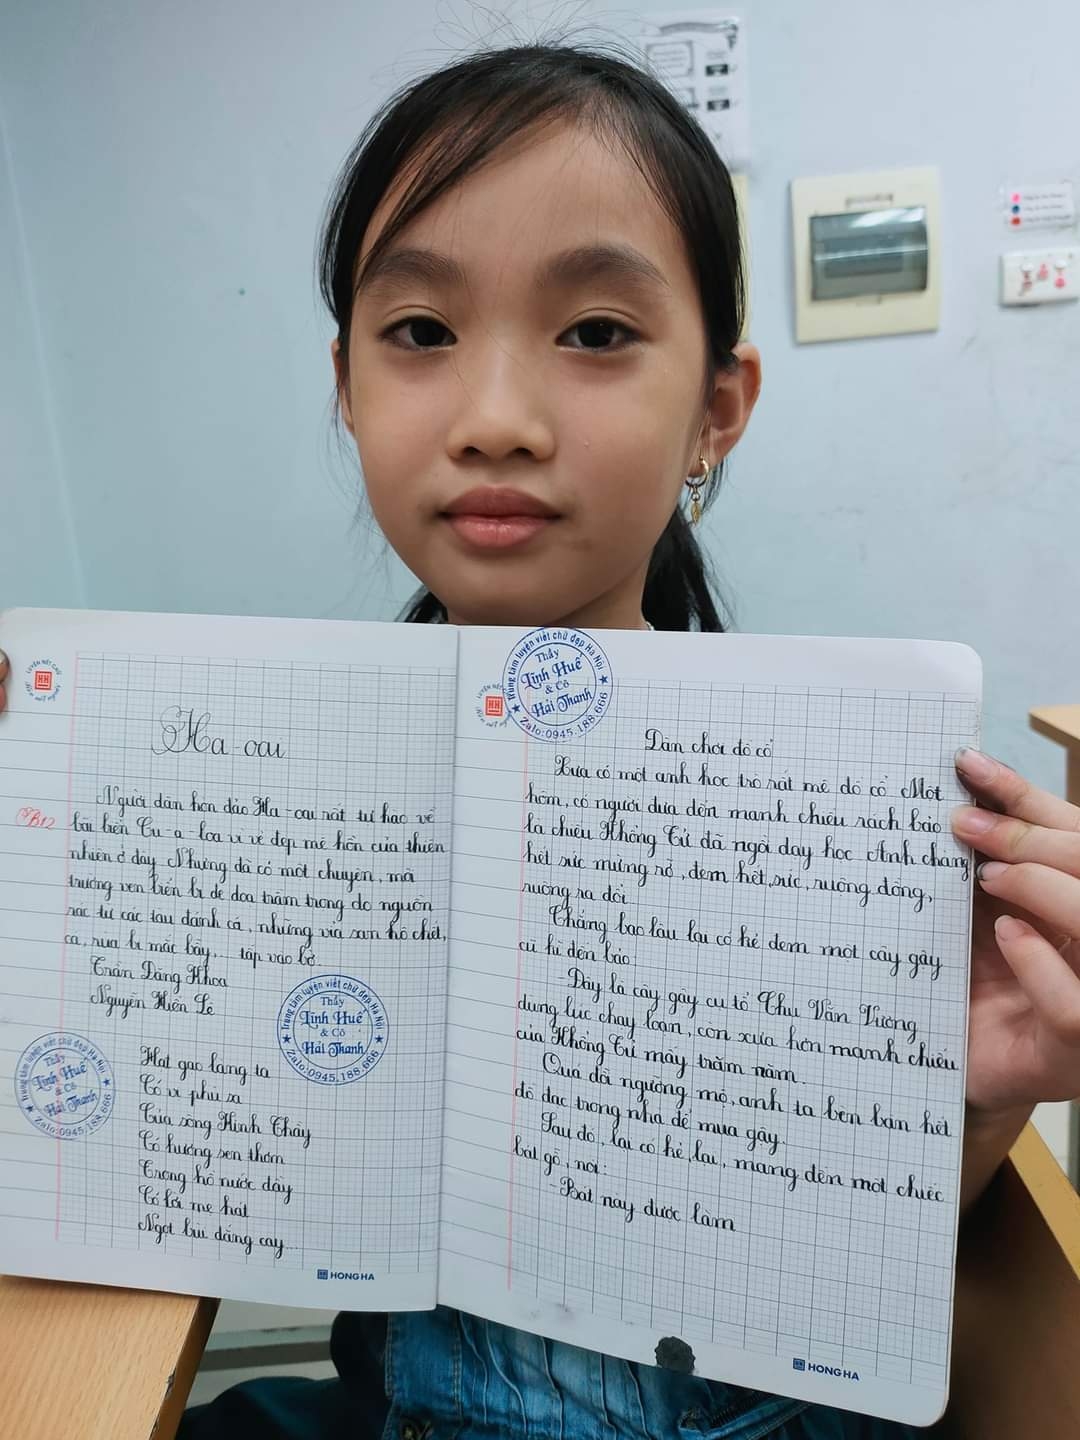 Ha-oai
Người dân hòn đảo Ha-oai rất tự hào về
B12
bãi biển Cu-a-loa vì vẻ đẹp mê hồn của thiên
nhiên ở đây. Nhưng đã có một chuyện, mà
trường ven biển bị đe dọa trầm trọng do nguồn
rác từ các tàu đánh cá, những vỉa san hô chết,
cá, rùa bị mắc bẫy,... tấp vào bờ.
Trần Đăng Khoa
Nguyễn Hiến Lê
Hạt gạo làng ta
Có vị phù sa
Của sông Kinh Thầy
Có hương sen thơm
Trong hồ nước đầy
Có lời mẹ hát
Ngọt bùi đắng cay...
Trung tâm luyện viết chữ đẹp Hà Nội
Thầy
Tình Huế
& Cô
Hải Thanh
Zalo:0945.188.666
Trung tâm luyện viết chữ đẹp Hà Nội
Thầy
Tình Huế
& Cô
Hải Thanh
Zalo:0945.188.666
HONG HA
Trung tâm luyện viết chữ đẹp Hà Nội
Thầy
Tình Huế
& Cô
Hải Thanh
Zalo:0945.188.666
Dân chơi đồ cổ
Xưa có một anh học trò rất mê đồ cổ. Một
hôm, có người đưa đến manh chiếu rách bảo
là chiếu Khổng Tử đã ngồi dạy học. Anh chàng
hết sức mừng rỡ, đem hết sức, ruộng đồng,
ruộng ra đổi.
Chẳng bao lâu lại có kẻ đem một cây gậy
cũ kĩ đến bảo:
Đây là cây gậy cụ tổ Chu Văn Vương
dùng lúc chạy loạn, còn xưa hơn manh chiếu
của Khổng Tử mấy trăm năm.
Quá đỗi ngưỡng mộ, anh ta bèn bán hết
đồ đạc trong nhà để mua gậy.
Sau đó, lại có kẻ lại, mang đến một chiếc
bát gỗ, nói:
- Bát này được làm
HONG HA